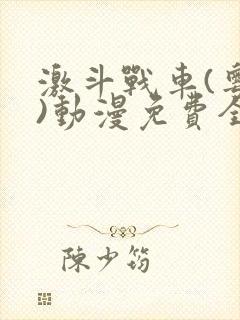 激斗戰車(
)動漫免費全
陳少筠